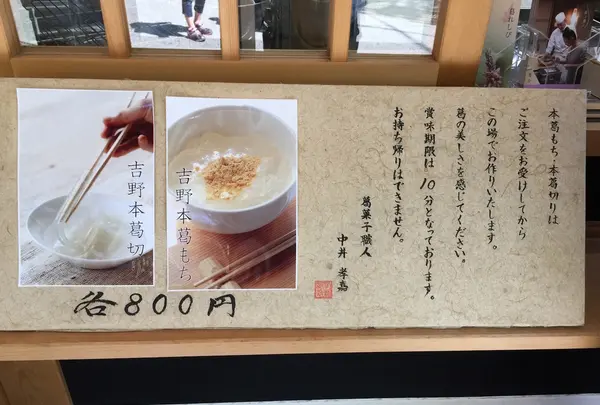 本葛もち・本葛切りは
ご注文をお受けしてから
この場でお作りいたします。
葛の美しさを感じてください。
賞味期限は10分となっております。
お持ち帰りはできません。
葛菓子職人
中井 孝嘉
吉野本葛もち
吉野本葛切
各800円